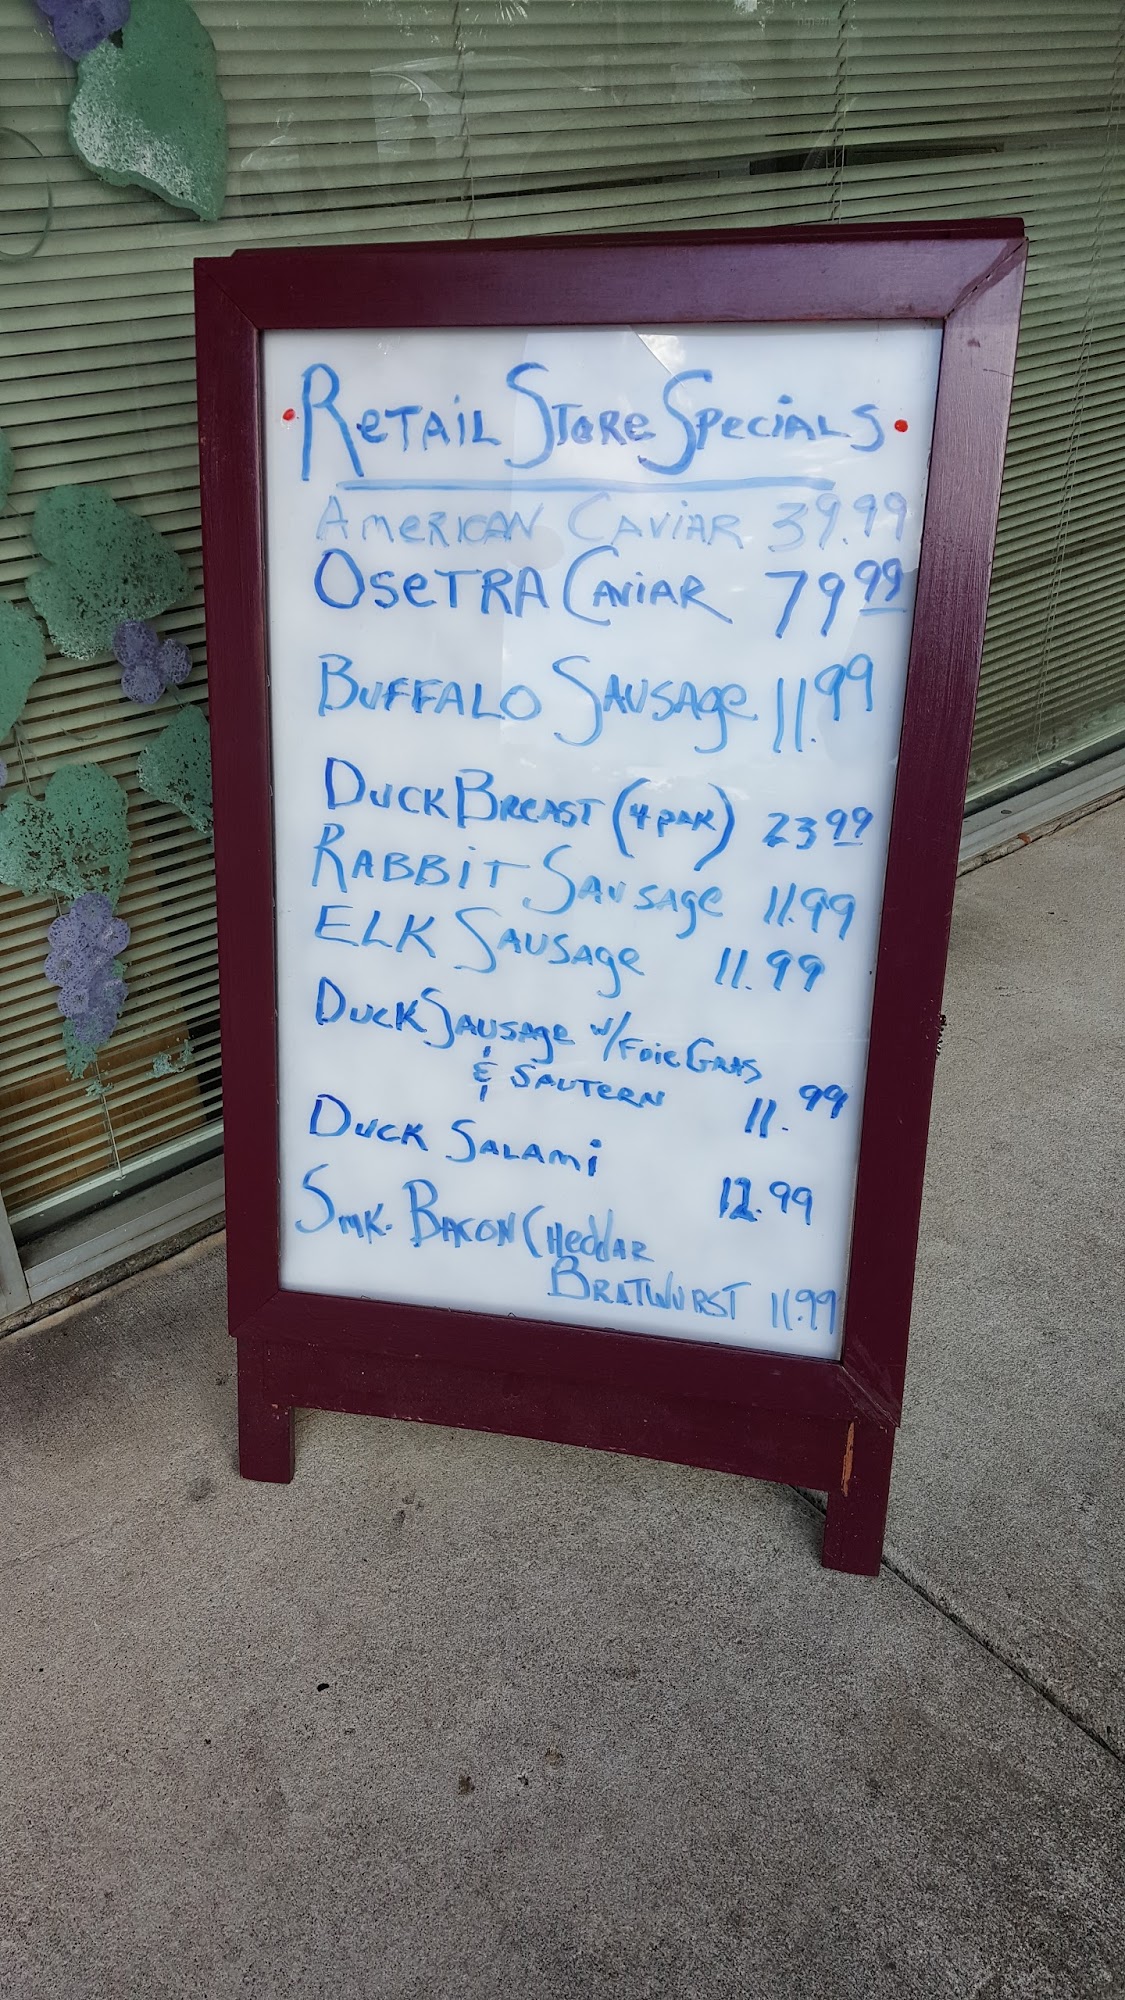 • RETAIL STORE SPECIALS •
AMERICAN CAVIAR 39.99
OSETRA CAVIAR 79 99
BUFFALO SAUSAGE 11.99
DUCK BREAST (4 PAK) 23 99
RABBIT SAUSAGE 11.99
ELK SAUSAGE 11.99
DUCK SAUSAGE W/ FOIE GRAS
& SAUTERN 11.99
DUCK SALAMI 12.99
SMK. BACON CHEDDAR
BRATWURST 11.99